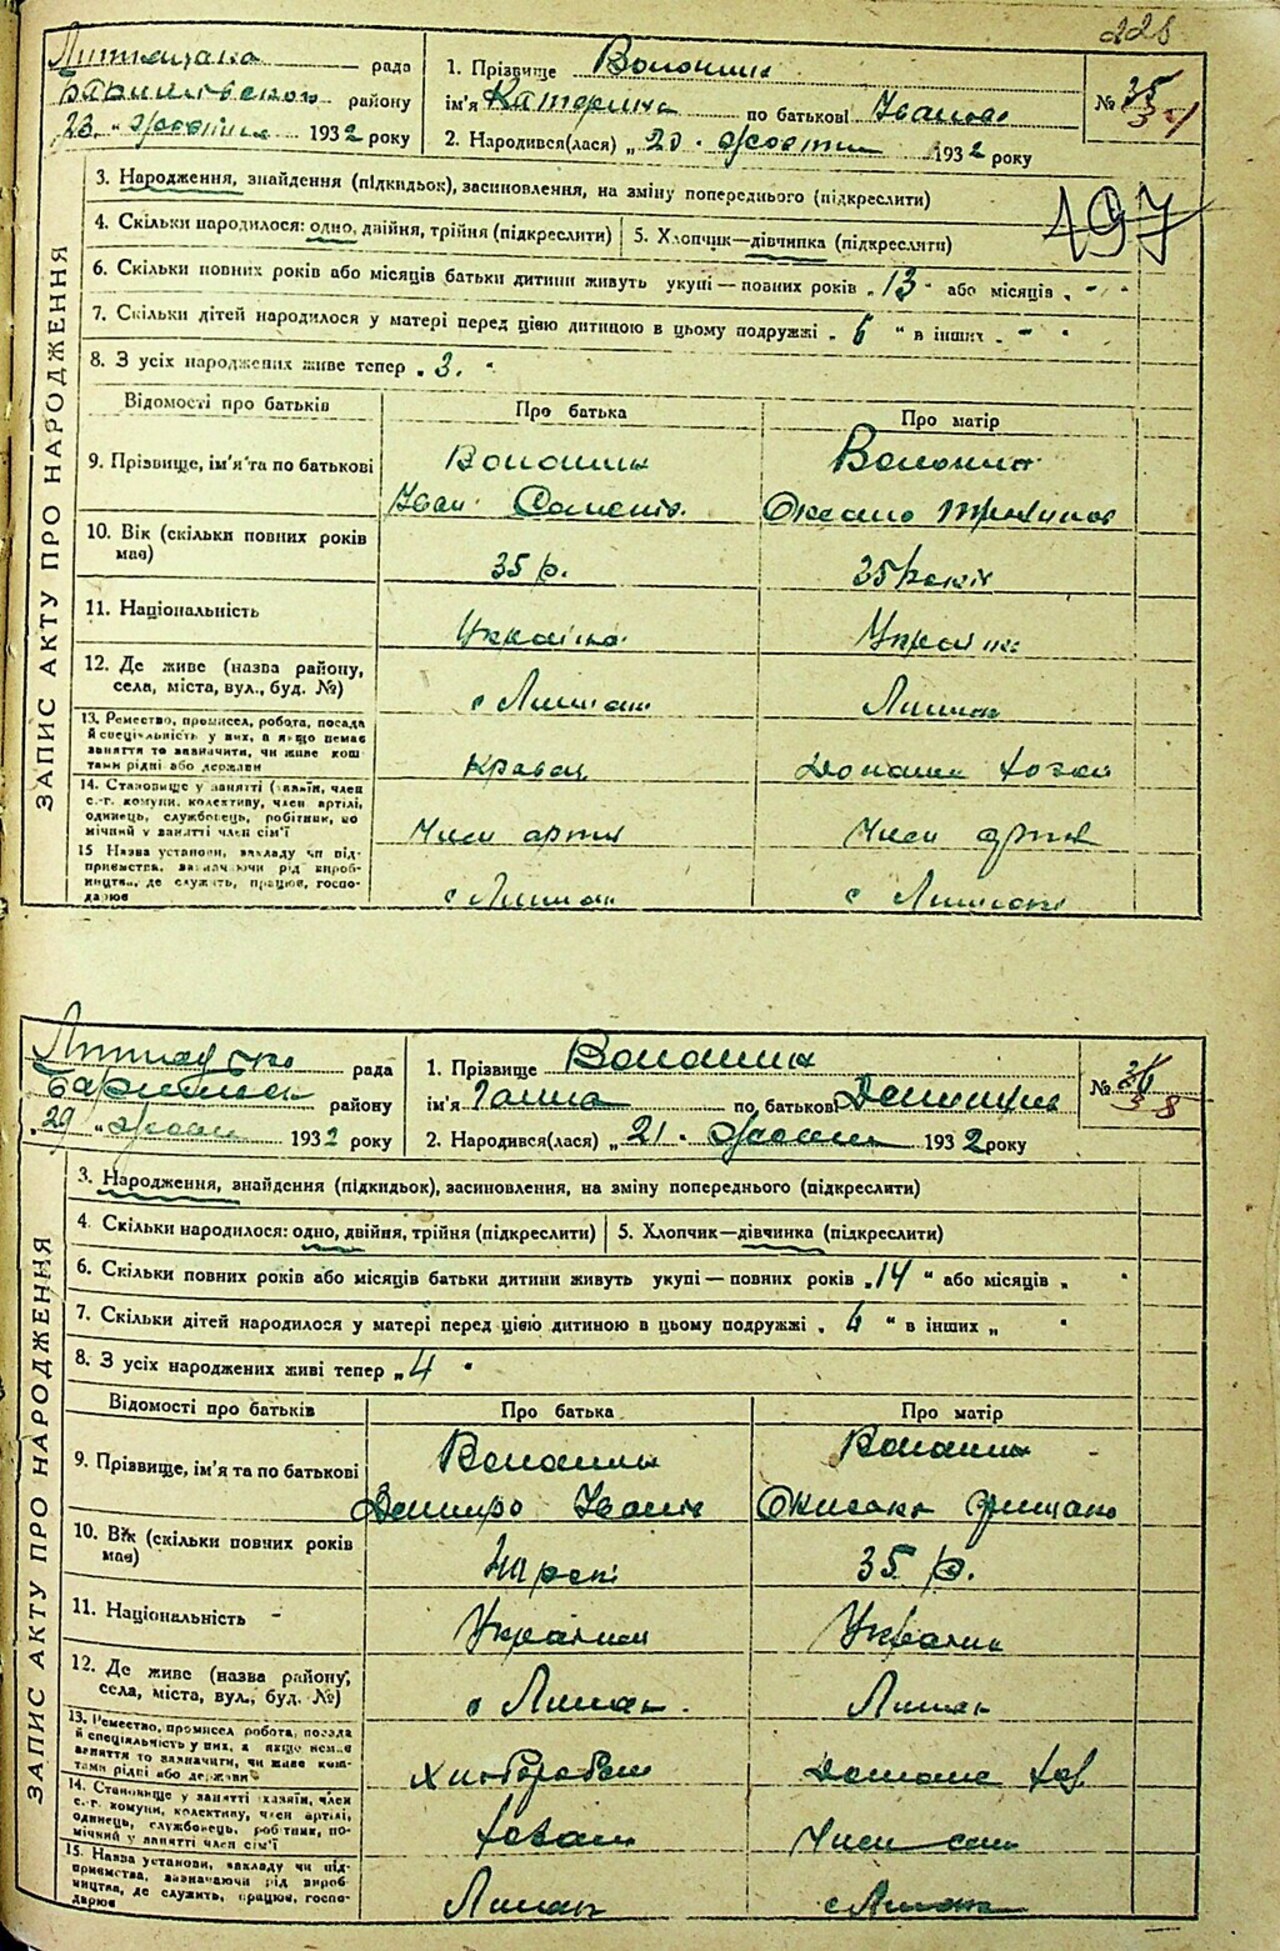 228
рада
району
23 " жовтня 1932 року
1. Прізвище Волошин
ім'я Катерина по батькові Іванова
2. Народився(лася) „ 20 " жовтня 1932 року
№ 35
ЗАПИС АКТУ ПРО НАРОДЖЕННЯ
3. Народження, знайдення (підкидьок), засиновлення, на зміну попереднього (підкреслити)
197
4. Скільки народилося: одно, двійня, трійня (підкреслити)
5. Хлопчик—дівчинка (підкреслити)
6. Скільки повних років або місяців батьки дитини живуть укупі — повних років „ 13 " або місяців „ - "
7. Скільки дітей народилося у матері перед цією дитиною в цьому подружжі „ 6 " в інших „ - "
8. З усіх народжених живе тепер „ 3. "
Відомості про батьків
Про батька
Про матір
9. Прізвище, ім'я та по батькові
Волошин
Волошин
Іван
10. Вік (скільки повних років має)
35 р.
35 років
11. Національність
12. Де живе (назва району, села, міста, вул., буд. №)
с Лиман
Лиман
13. Ремество, промисел, робота, посада й спеціяльність у них, а якщо немає заняття то зазначити, чи живе коштами рідні або держави
Кравец
14. Становище у занятті (хазяїн, член с.-г. комуни, колективу, член артілі, одинець, службовець, робітник, помічний у занятті член сім'ї
Член артіл
Член артіл
15 Назва установи, закладу чи підприємства, зазначаючи рід виробництва, де служить, працює, господарює
с Лиман
с Лиман
рада
району
„ 29 " 1932 року
1. Прізвище Волошин
ім'я Ганна по батькові
2. Народився(лася) „ 21 " жовтн 1932 року
№ 36
38
ЗАПИС АКТУ ПРО НАРОДЖЕННЯ
3. Народження, знайдення (підкидьок), засиновлення, на зміну попереднього (підкреслити)
4. Скільки народилося: одно, двійня, трійня (підкреслити)
5. Хлопчик—дівчинка (підкреслити)
6. Скільки повних років або місяців батьки дитини живуть укупі — повних років „ 14 " або місяців „ "
7. Скільки дітей народилося у матері перед цією дитиною в цьому подружжі „ 6 " в інших „ "
8. З усіх народжених живі тепер „ 4 "
Відомості про батьків
Про батька
Про матір
9. Прізвище, ім'я та по батькові
Волошин
Волошин
10. Вік (скільки повних років має)
35 р.
11. Національність
12. Де живе (назва району, села, міста, вул., буд. №)
с Лиман
Лиман
13. Ремество, промисел робота, посада й спеціяльність у них, а якщо немає заняття то зазначити, чи живе коштами рідні або держави
Хлібороб
14. Становище у занятті хазяїн, член с.-г. комуни, колективу, член артілі, одинець, службовець, робітник, помічний у занятті член сім'ї
Член сім
15. Назва установи, закладу чи підприємства, зазначаючи рід виробництва, де служить, працює, господарює
Лиман
с Лиман